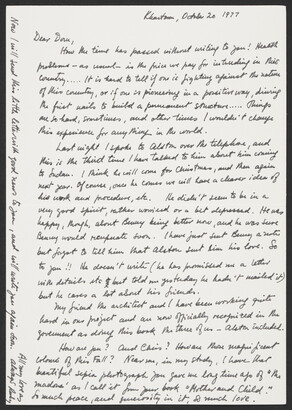 Khartoum, October 20 1977
Dear Dom,
How the time has passed without writing to you! Health
problems – as usual – is the price we pay for intruding in this
country..... It is hard to tell if one is fighting against the nature
of this country, or if one is pioneering in a positive way, driving
the first nails to build a permanent structure..... Things
are so hard, sometimes, and other times I wouldn't change
this experience for anything in the world.
Last night I spoke to Alston over the telephone, and
this is the third time I have talked to him about him coming
to Sudan. I think he will come for Christmas, and then again
next year. Of course, once he comes we will have a clearer idea of
his work and procedure, etc. He didn't seem to be in a
very good spirit, rather worried or a bit depressed. He was
happy, though, about Benny being better now, and he was sure
Benny would recuperate soon. I have just sent Benny a note
but forgot to tell him that Alston sent him his love. So
to you!! He doesn't write (he has promised me a letter
with details etc. & but told me yesterday he hadn't mailed it)
but he cares a lot about his friends.
My friend the architect and I have been working quite
hard in our project and are now officially recognized in the
government as doing this book the three of us – Alston included.
How are you? And Cairo? How are those magnificent
colours of this Fall? Near me, in my study, I have that
beautiful sepia photograph you gave me long time ago of "the
madona" as I call it from your book "Mother and Child".
So much peace, and generosity in it, & so much love.
Now I will send this little letter with good news to you, and will write you again soon.
All my love
always